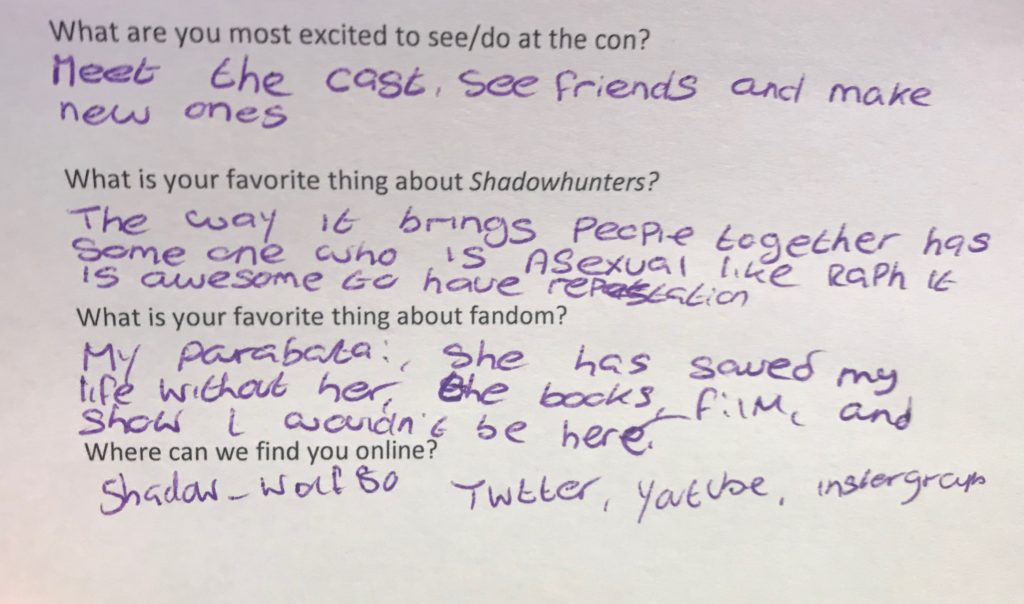 What are you most excited to see/do at the con?
Meet the cast, see friends and make
new ones
What is your favorite thing about Shadowhunters?
The way it brings people together has
Some one who is Asexual like Raph it
is awesome to have
What is your favorite thing about fandom?
My parabatai, She has saved my
life without her, the books, film, and
Show I wouldn't be here.
Where can we find you online?
Twtter, Yatube, instergraph